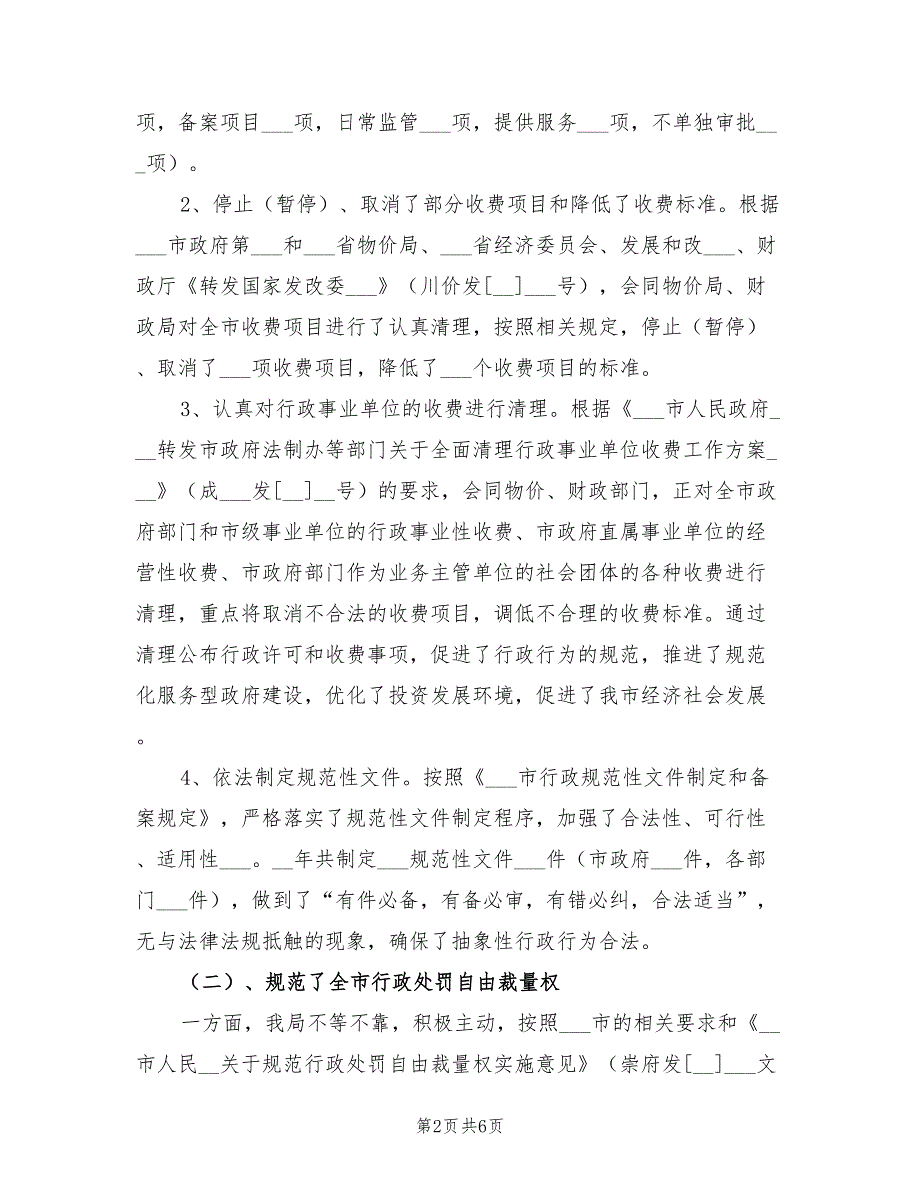 项，备案项目___项，日常监管___项，提供服务___项，不单独审批__
_项）。
2、停止（暂停）、取消了部分收费项目和降低了收费标准。根据
___市政府第___和___省物价局、___省经济委员会、发展和改___、财
政厅《转发国家发改委___》（川价发[__]___号），会同物价局、财
政局对全市收费项目进行了认真清理，按照相关规定，停止（暂停）
、取消了___项收费项目，降低了___个收费项目的标准。
3、认真对行政事业单位的收费进行清理。根据《___市人民政府_
__转发市政府法制办等部门关于全面清理行政事业单位收费工作方案_
__》（成___发[__]__号）的要求，会同物价、财政部门，正对全市政
府部门和市级事业单位的行政事业性收费、市政府直属事业单位的经
营性收费、市政府部门作为业务主管单位的社会团体的各种收费进行
清理，重点将取消不合法的收费项目，调低不合理的收费标准。通过
清理公布行政许可和收费事项，促进了行政行为的规范，推进了规范
化服务型政府建设，优化了投资发展环境，促进了我市经济社会发展
。
4、依法制定规范性文件。按照《___市行政规范性文件制定和备
案规定》，严格落实了规范性文件制定程序，加强了合法性、可行性
、适用性___。__年共制定___规范性文件___件（市政府___件，各部
门___件），做到了“有件必备，有备必审，有错必纠，合法适当”，
无与法律法规抵触的现象，确保了抽象性行政行为合法。
（二）、规范了全市行政处罚自由裁量权
一方面，我局不等不靠，积极主动，按照___市的相关要求和《__
市人民__关于规范行政处罚自由裁量权实施意见》（崇府发[__]___文
第2页 共6页